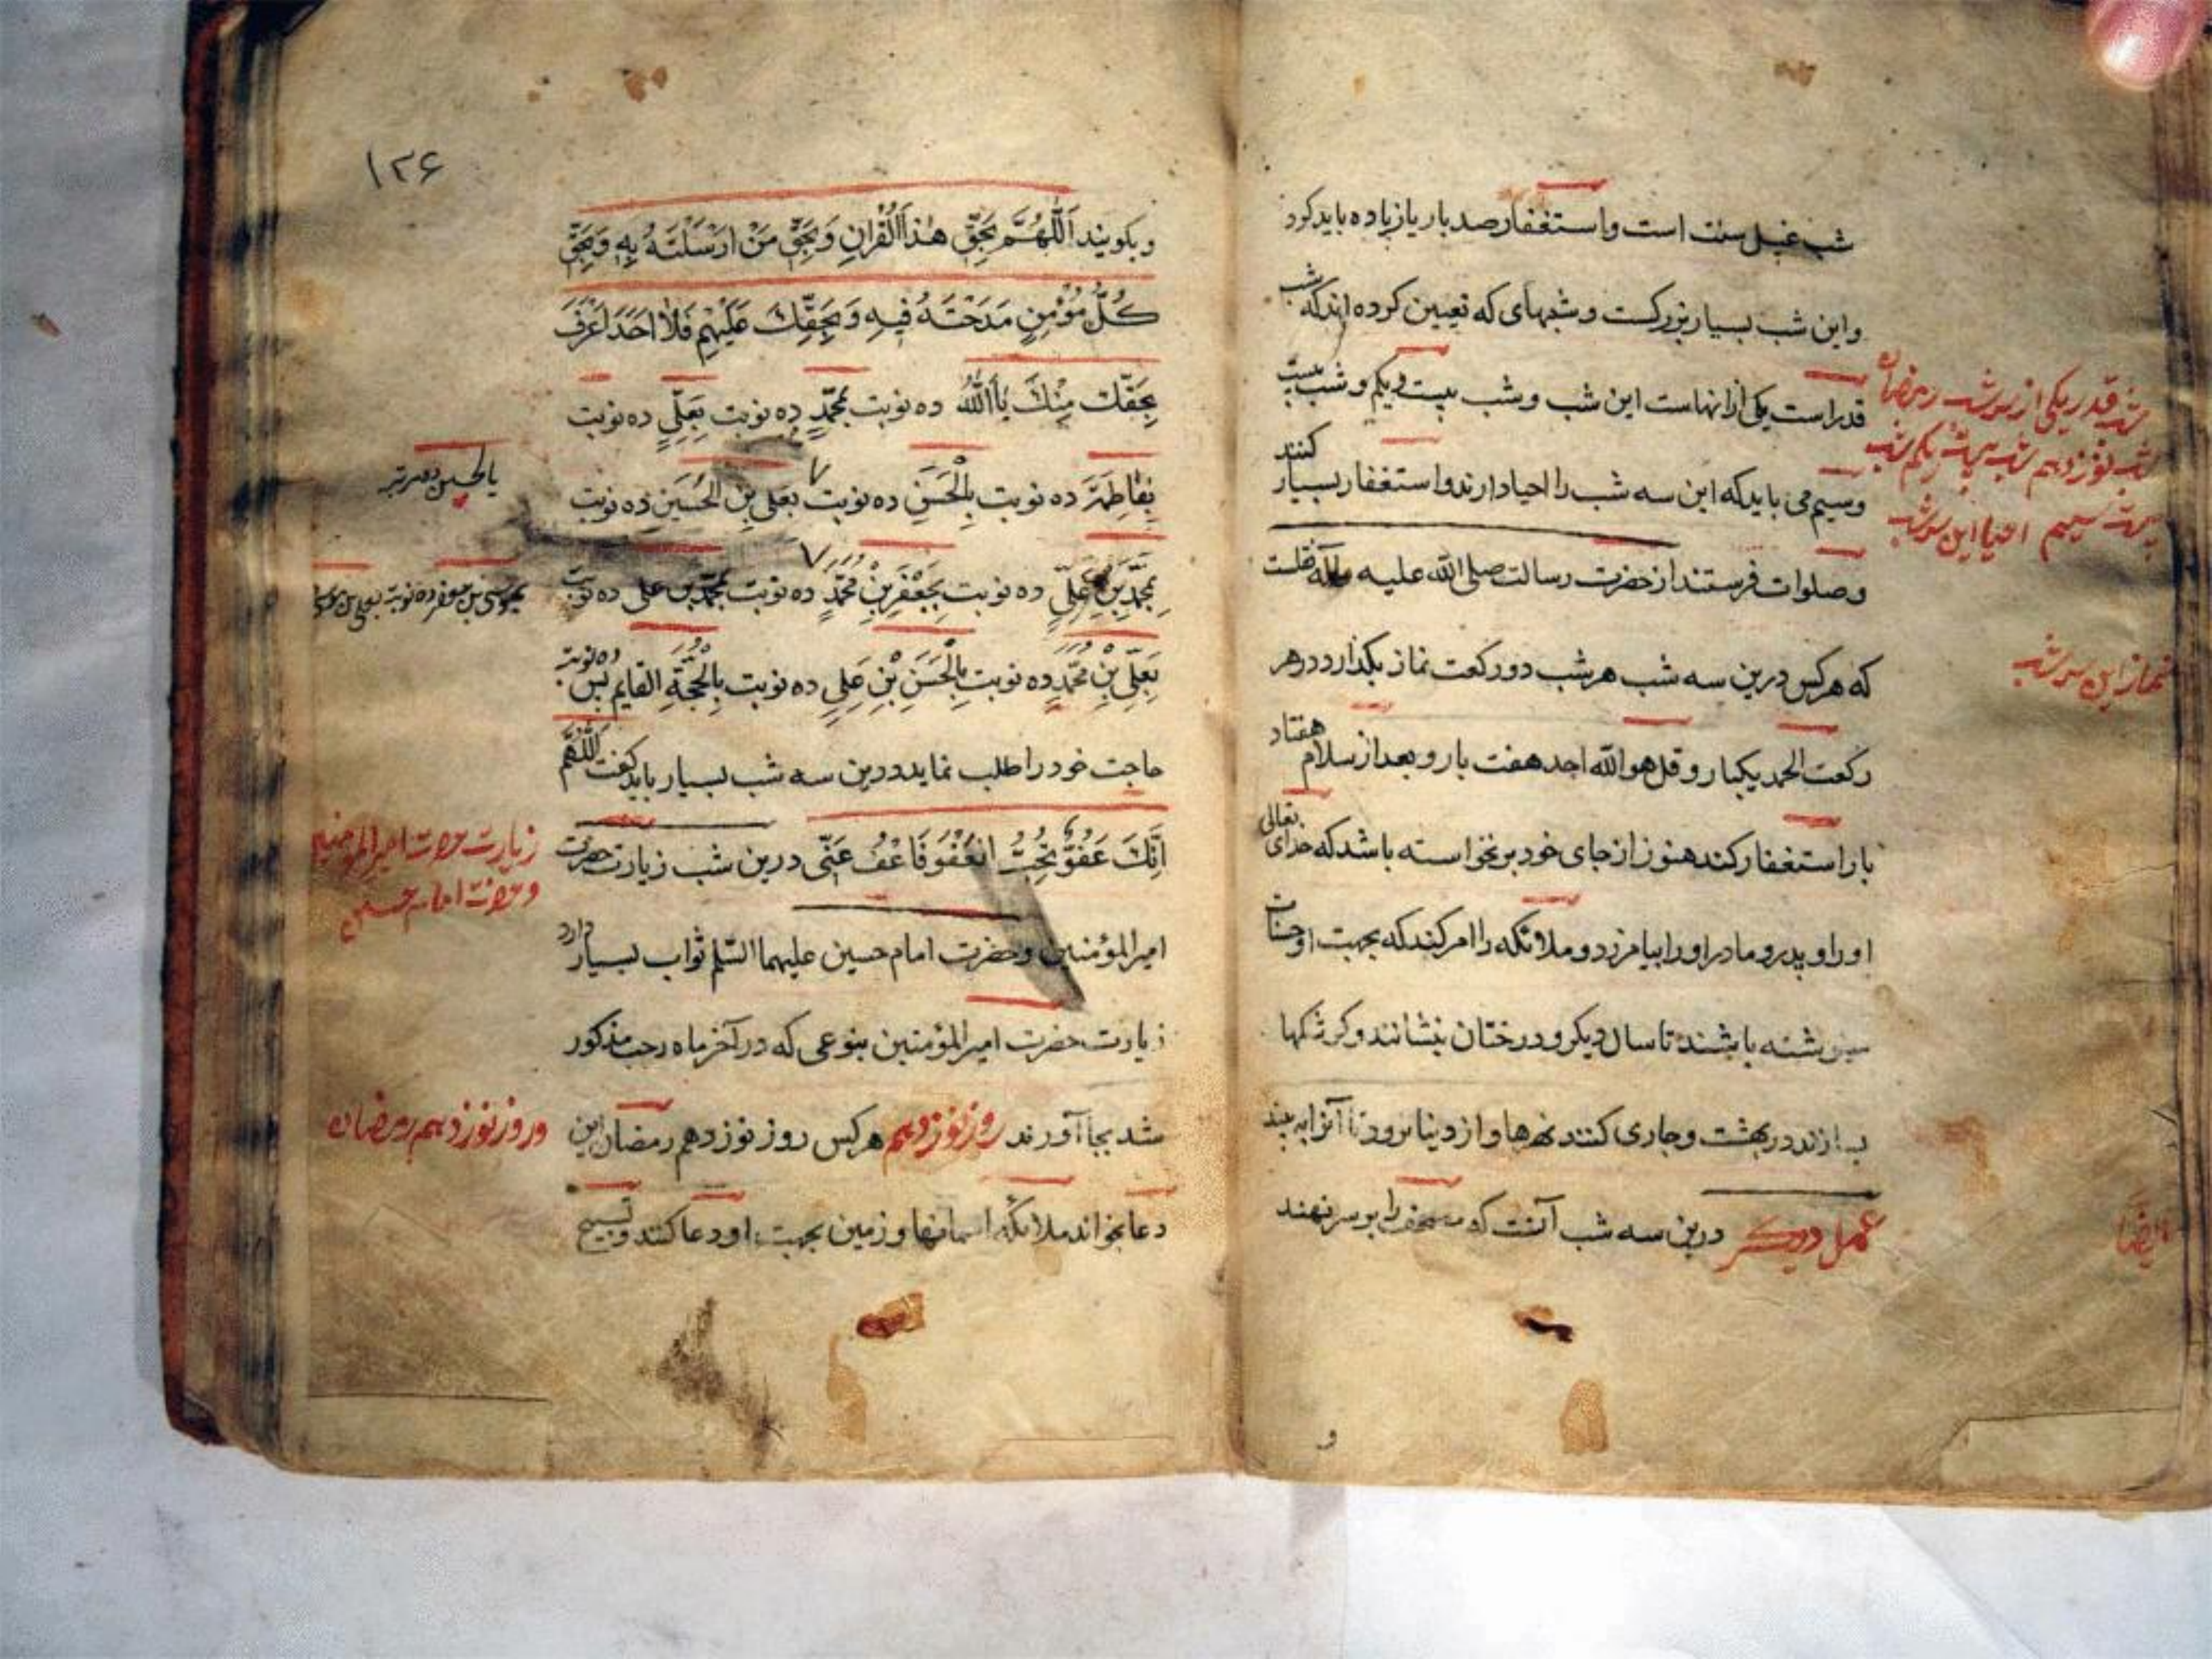 شب غسل سنت است و استغفار صد بار یا زیاده باید کرد
و این شب بسیار بزرکست و شبهای که تعیین کرده اند که شب
قدر است یکی از انهاست این شب و شب بیست و یکم و شب بیست
و سیم می باید که این سه شب را احیا دارند و استغفار بسیار کنند
و صلوات فرستند از حضرت رسالت صلی الله علیه وآله
که هر کس درین سه شب هر شب دو رکعت نماز بکذارد در هر
رکعت الحمد یکبار و قل هو الله احد هفت بار و بعد از سلام هفتاد
بار استغفار کند هنوز از جای خود برنخواسته باشد که خدای تعالی
او را و پدر و مادر او را بیامرزد و ملائکه را امر کند که بجهت او حسنات
باشند تا سال دیکر و درختان بنشانند و کوشکها
در بهشت و جاری کنند نهرها و از دینا نرود تا آنرا به بیند
عمل دیکر درین سه شب آنست که مصحف را بر سر نهند
شب قدر یکی از سه شب رمضان
شب نوزدهم شب بیست یکم شب
بیست سیم احیا این سه شب
نماز این سه شب
ایضا
و
۱۲۶
و بکویند اَللّٰهُمَّ بِحَقِّ هٰذَا الْقُرْاٰنِ وَ بِحَقِّ مَنْ اَرْسَلْتَهُ بِهِ وَ بِحَقِّ
كُلِّ مُؤْمِنٍ مَدَحْتَهُ فِیهِ وَ بِحَقِّكَ عَلَیْهِمْ فَلَا اَحَدَ اَعْرَفَ
بِحَقِّكَ مِنْكَ یَا اَللّٰهُ ده نوبت بِمُحَمَّدٍ ده نوبت بِعَلِیٍّ ده نوبت
بِفَاطِمَةَ ده نوبت بِالْحَسَنِ ده نوبت بِعَلِی بْنِ الْحُسَیْنِ ده نوبت
بِمُحَمَّدِ بْنِ عَلِیٍّ ده نوبت بِجَعْفَرِ بْنِ مُحَمَّدٍ ده نوبت بِمُحَمَّدِ بْنِ علی ده نوبت
بِعَلِیِّ بْنِ مُحَمَّدٍ ده نوبت بِالْحَسَنِ بْنِ عَلِیٍ ده نوبت بِالْحُجَّةِ القایم ده نوبت پس
حاجت خود را طلب نماید و درین سه شب بسیار باید کفت اَللّٰهُمَّ
اِنَّكَ عَفُوٌّ تُحِبُّ الْعَفْوَ فَاعْفُ عَنِّی درین شب زیارت حضرت
امیرالمؤمنین و حضرت امام حسین علیهما السّلم ثواب بسیار دارد
زیارت حضرت امیرالمؤمنین بنوعی که در آخر ماه رجب مذکور
شد بجا آورند روز نوزدهم هر کس روز نوزدهم رمضان این
دعا بخواند ملائکه اسمانها و زمین بجهت او دعا کنند و تسبیح
بالحسین ده مرتبه
بموسی بن جعفر ده نوبة بعلی بن موسی
زیارت حضرت امیرالمومنین
و حضرت امام حسین
و روز نوزدهم رمضان